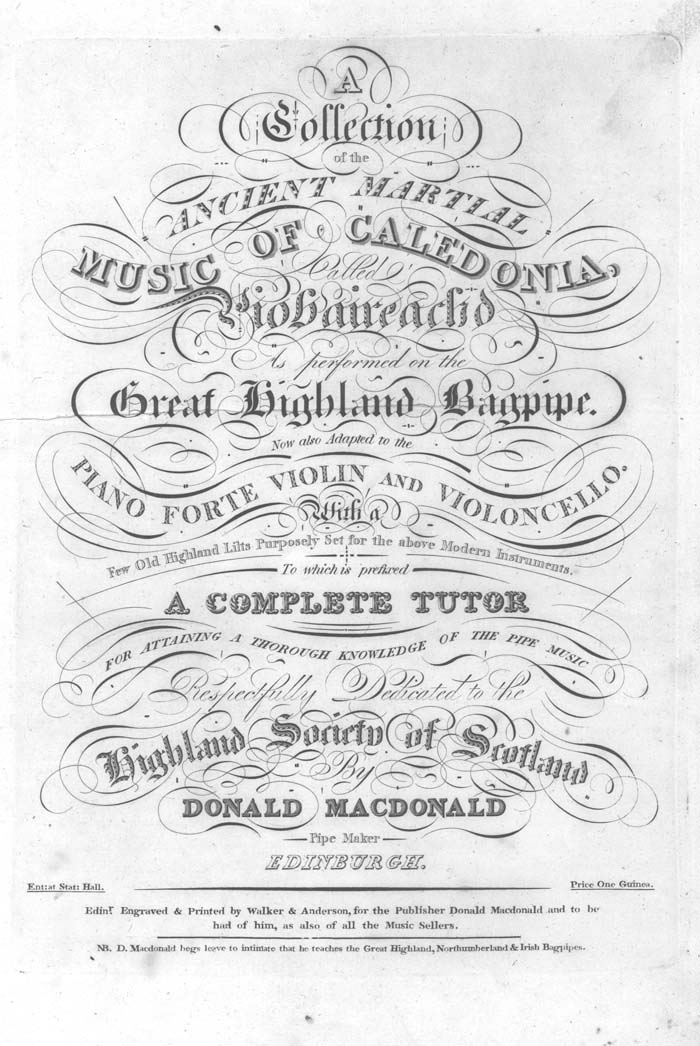 A
Collection
of the
ANCIENT MARTIAL
MUSIC OF CALEDONIA,
Called
Piobaireachd
As performed on the
Great Highland Bagpipe.
Now also Adapted to the
PIANO FORTE VIOLIN AND VIOLONCELLO.
With a
Few Old Highland Lilts Purposely Set for the above Modern Instruments.
To which is prefixed
A COMPLETE TUTOR
FOR ATTAINING A THOROUGH KNOWLEDGE OF THE PIPE MUSIC
Respectfully Dedicated to the
Highland Society of Scotland
By
DONALD MACDONALD
Pipe Maker
EDINBURGH.
Ent: at Stat: Hall.
Price One Guinea.
Edinr. Engraved & Printed by Walker & Anderson, for the Publisher Donald Macdonald and to be
had of him, as also of all the Music Sellers.
NB. D. Macdonald begs leave to intimate that he teaches the Great Highland, Northumberland & Irish Bagpipes.